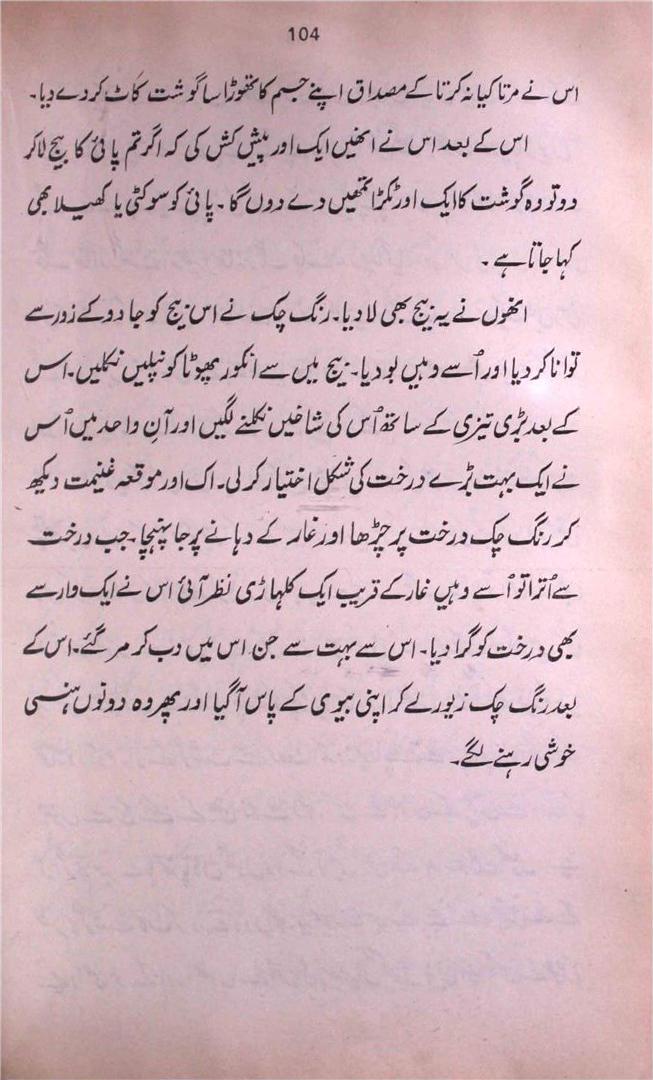 104
اس نے مرتا کیا نہ کرتا کے مصداق اپنے جسم کا تھوڑا سا گوشت کاٹ کر دے دیا۔
اس کے بعد اس نے انھیں ایک اور پیش کش کی کہ اگر تم پائی کا بیج لا کر
دو تو وہ گوشت کا ایک اور ٹکڑا تمھیں دے دوں گا۔ پائی کو سوکٹی یا کھیلا بھی
کہا جاتا ہے۔
انھوں نے یہ بیج بھی لا دیا۔ رنگ چک نے اس بیج کو جادو کے زور سے
توانا کر دیا اور اُسے وہیں بو دیا۔ بیج میں سے انکور پھوٹا کونپلیں نکلیں۔ اس
کے بعد بڑی تیزی کے ساتھ اُس کی شاخیں نکلنے لگیں اور آنِ واحد میں اُس
نے ایک بہت بڑے درخت کی شکل اختیار کر لی۔ اک اور موقعہ غنیمت دیکھ
کر رنگ چک درخت پر چڑھا اور غار کے دہانے پر جا پہنچا۔ جب درخت
سے اُترا تو اُسے وہیں غار کے قریب ایک کلہاڑی نظر آئی اس نے ایک وار سے
بھی درخت کو گرا دیا۔ اس سے بہت سے جن اس میں دب کر مر گئے۔ اس کے
بعد رنگ چک زیور لے کر اپنی بیوی کے پاس آ گیا اور پھر وہ دونوں ہنسی
خوشی رہنے لگے۔